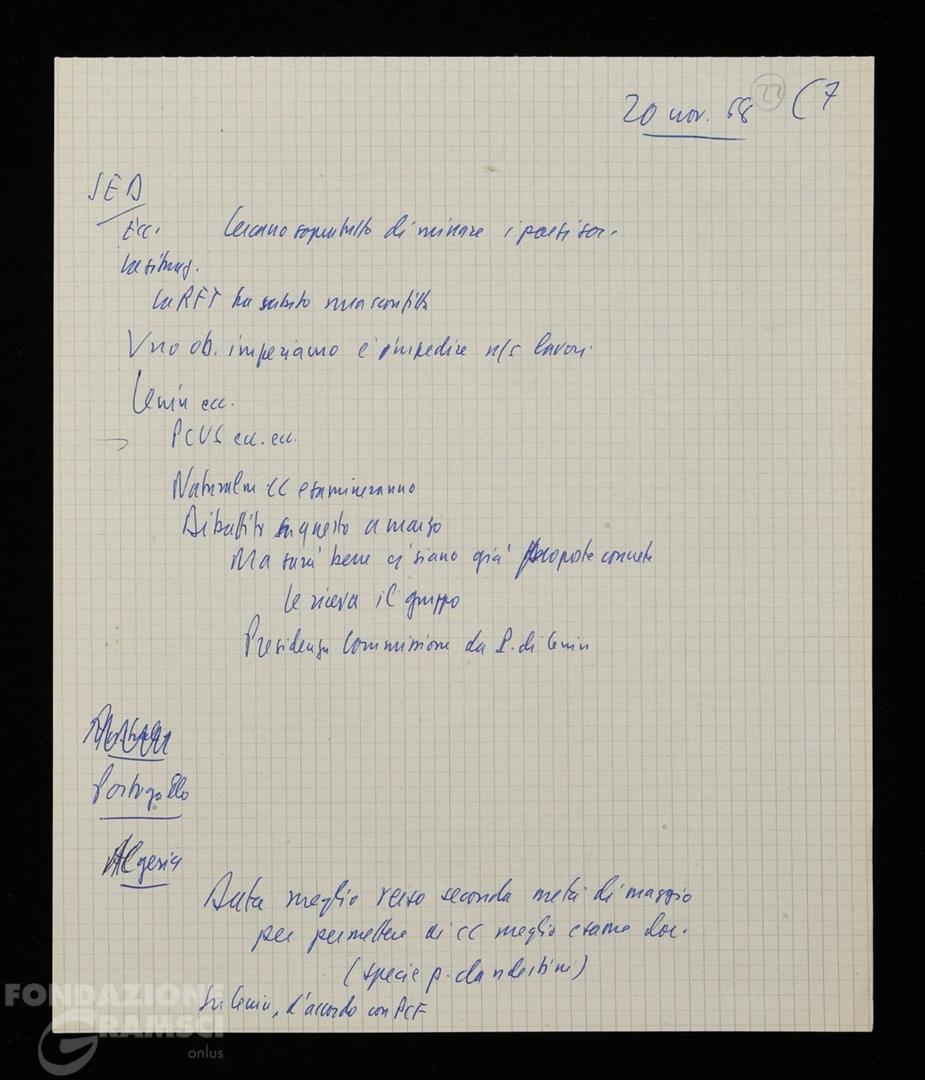 20 nov. 68 22 (7
SED
Ecc. Cercano soprattutto di minare i paesi soc.
La situaz.
La RFT ha subito una sconfitta
Uno ob. imperiamo è impedire n/s lavori
Lenin ecc.
PCUS ecc. ecc.
Naturalm CC esamineranno
Dibattito su questo a marzo
Ma sarà bene ci siano già proposte concrete
Le riceva il gruppo
Presidenza Commissione da P. di Lenin
Portogallo
Algeria
Data meglio verso seconda metà di maggio
per permettere ai CC meglio esame doc.
(specie p. clandestini)
Su Lenin, d'accordo con PCF
FONDAZIONE
GRAMSCI
onlus